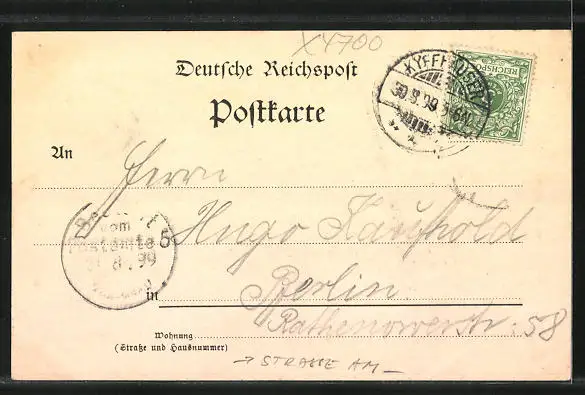 X4700
Deutsche Reichspost
Postkarte
KYFFHÄUSER
30.8.99
REICHSPOST
An
Herrn
Hugo Kauffhold
Berlin
vom
Postamte 5
31.8.99
in
Rathenowerstr: 58
Wohnung
(Straße und Hausnummer)
→ STRASSE AM –